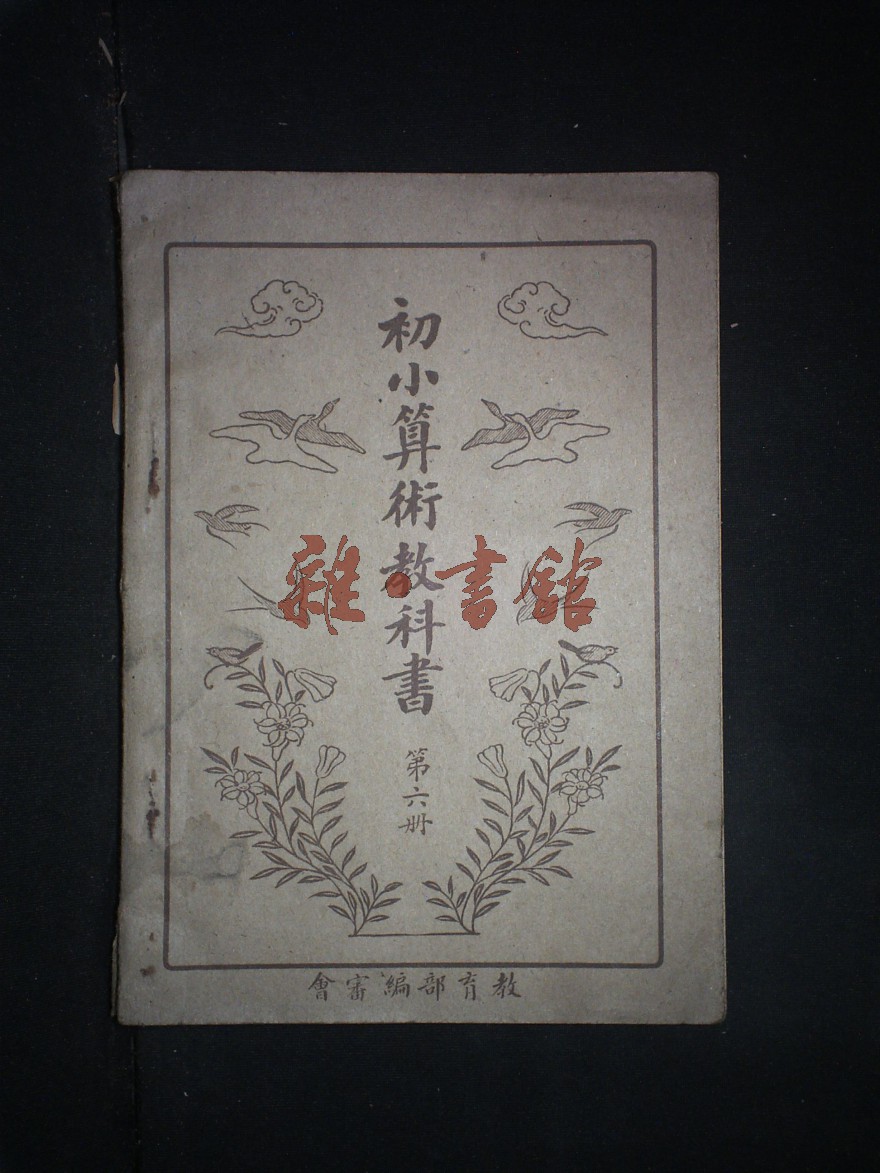 初小算術教科書
第六册
教育部編審會
雜·書館